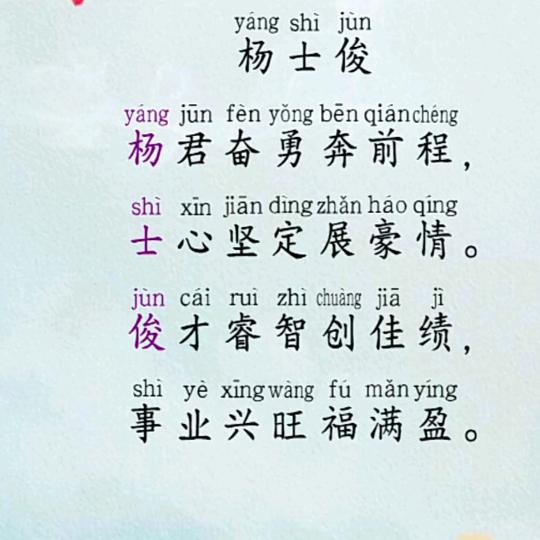 yáng shì jùn
杨士俊
yáng jūn fèn yǒng bēn qián chéng
杨君奋勇奔前程，
shì xīn jiān dìng zhǎn háo qíng
士心坚定展豪情。
jùn cái ruì zhì chuàng jiā jì
俊才睿智创佳绩，
shì yè xīng wàng fú mǎn yíng
事业兴旺福满盈。